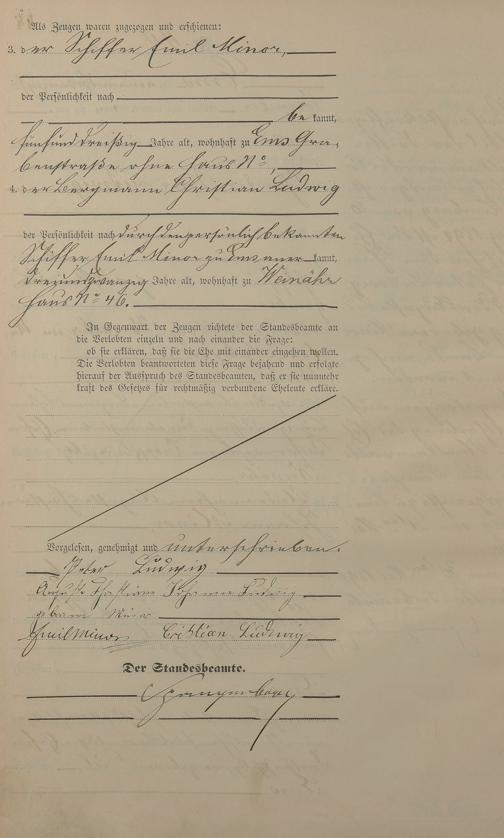 Als Zeugen waren zugezogen und erschienen:
3. der Schiffer Emil Minor,
der Persönlichkeit nach
be kannt,
fünfunddreißig Jahre alt, wohnhaft zu Ems Gra-
benstraße ohne Haus No,
4. der Bergmann Christian Ludwig
der Persönlichkeit nach durch den persönlich bekannten
Schiffer Emil Minor zu Ems aner kannt,
dreiundzwanzig Jahre alt, wohnhaft zu Weinähr
Haus No 46.
In Gegenwart der Zeugen richtete der Standesbeamte an
die Verlobten einzeln und nach einander die Frage:
ob sie erklären, daß sie die Ehe mit einander eingehen wollen.
Die Verlobten beantworteten diese Frage bejahend und erfolgte
hierauf der Ausspruch des Standesbeamten, daß er sie nunmehr
kraft des Gesetzes für rechtmäßig verbundene Eheleute erkläre.
Vorgelesen, genehmigt und unterschrieben.
Peter Ludwig
Johanna Ludwig
Minor
Emil Minor Cristian Ludwig
Der Standesbeamte.
Spangenberg